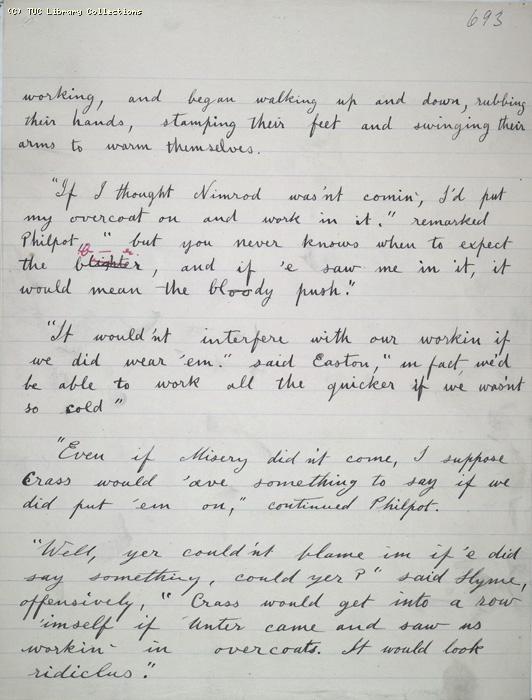 (C) TUC Library Collections
693
working, and began walking up and down, rubbing
their hands, stamping their feet and swinging their
arms to warm themselves.
"If I thought Nimrod was'nt comin', I'd put
my overcoat on and work in it." remarked
Philpot, "but you never knows when to expect
B — r.
the blighter, and if 'e saw me in it, it
would mean the bloody push."
"It would'nt interfere with our workin if
we did wear 'em." said Easton, "in fact we'd
be able to work all the quicker if we was'nt
so cold"
"Even if Misery did n't come, I suppose
Crass would 'ave something to say if we
did put 'em on," continued Philpot.
"Well, yer could'nt blame im if 'e did
say something, could yer?" said Slyme,
offensively, "Crass would get into a row
'imself if 'Unter came and saw us
workin' in overcoats. It would look
ridiclus".